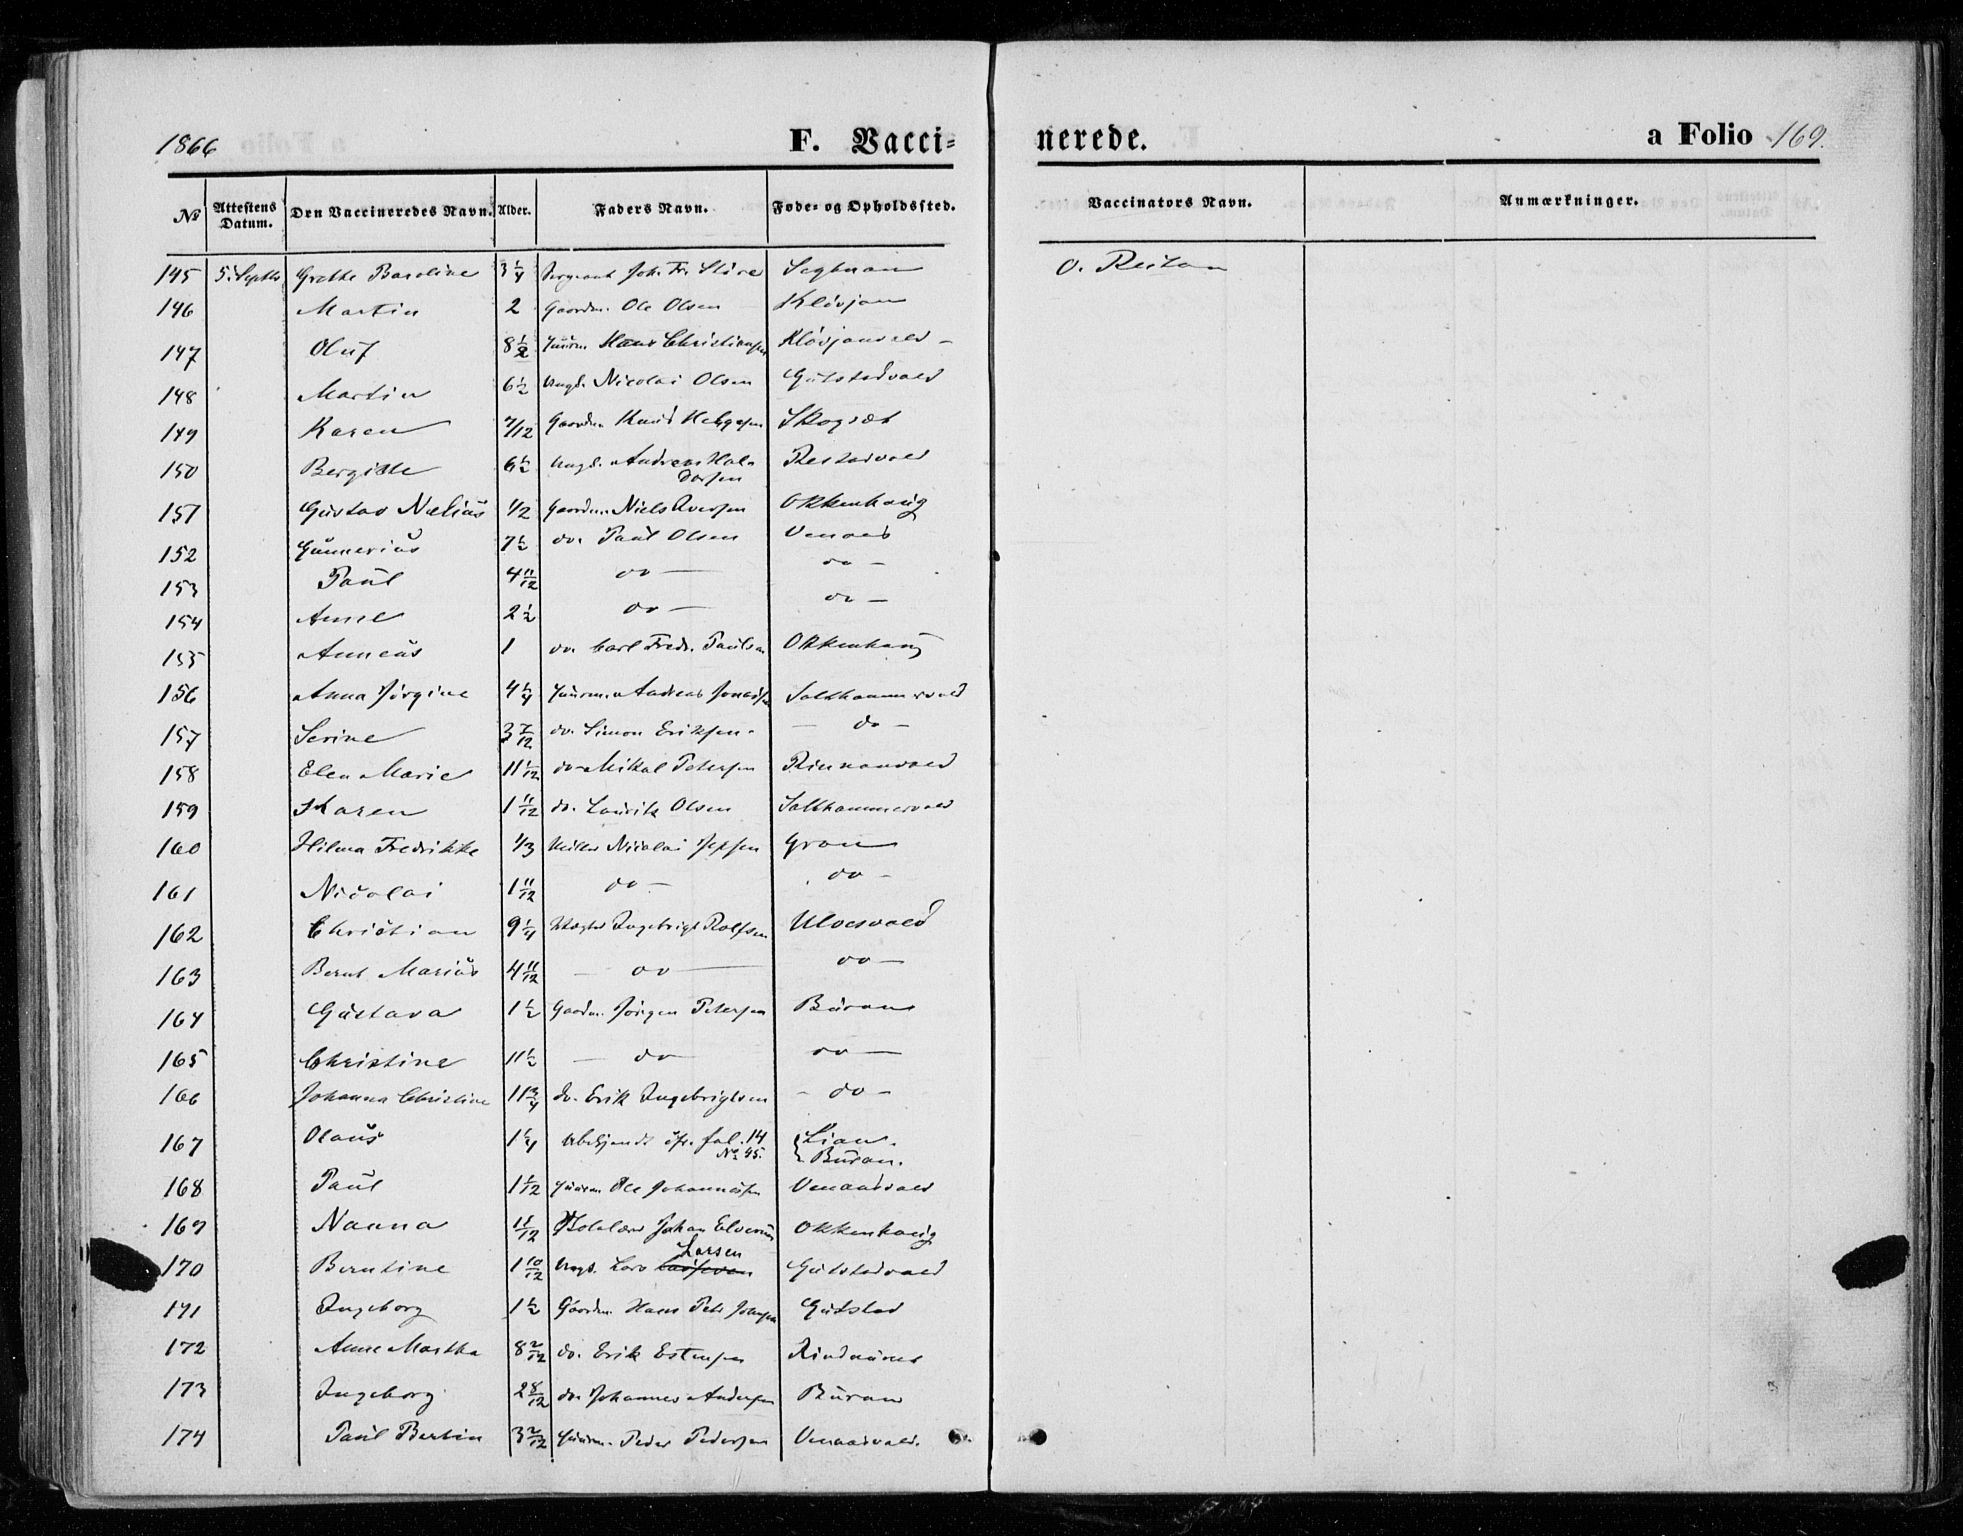 1866 F. Vacci= nerede. a Folio 169.
No Attestens Datum. Den Vaccineredes Navn. Alder. Faders Navn. Føde= og Opholdssted. Vaccinators Navn. Anmærkninger.
145 5. Septbr Grethe Baroline 3 1/4 Sergeant Joh. Fr. Støre O. Reitan
146 Martin 2 Gaardm. Ole Olsen Kløvjan
147 Oluf 8 1/2 Huusm. Hans Christiansen
148 Martin 6 1/2 Ungk. Nicolai Olsen Gutstadvald
149 Karen 7/12 Gaardm. Knud Helgesen Skogset
150 Bergitte 6 1/2 Ungk. Andreas Hal=
dorsen Restadvald
151 Gustav Nælius 1/2 Gaardm. Niels Iversen Okkenhaug
152 Gunnerius 7 1/2 do. Paul Olsen Venaas
153 Paul 4 11/12 do — do —
154 Anne 2 1/2 do — do —
155 Anneus 1 do. Carl Fredr. Paulsen Okkenhaug
156 Anna Jørgine 4 1/4 Huusm. Andreas Jonassen Salthammervald
157 Serine 3 7/12 do. Simon Eriksen. — do —
158 Elen Marie 11 1/12 do Mikal Petersen Rinnanvald
159 Karen 1 11/12 do. Lauritz Olsen Salthammervald
160 Hilma Fredrikke 1/3 Møller Nicolai Jepsen Gran
161 Nicolai 1 11/12 do — do —
162 Christian 9 1/4 Ingebrigt Rolfsen Ulvesvald
163 Bernt Marius 4 11/12 — do — do —
164 Gustava 1 1/2 Gaardm. Jørgen Petersen Buran
165 Christine 11 1/2 — do — do —
166 Johanna Christine 11 3/4 do. Erik Ingebrigtsen — do —
167 Olaus 1 1/4 Ubekjendt cfr. fol. 14
No 45. Lian.
Buran.
168 Paul 1 1/12 Huusm Ole Johannesen Venaasvald
169 Nanna 1 1/12 Skolelærer Johan Elverum Okkenhaug
170 Berntine 1 10/12 Ungk. Lars Larsen Gutstadvald
171 Ingeborg 1 1/2 Gaardm. Hans Petr Johnsen Gutstad
172 Anne Martha 8 2/12 do. Erik Estensen
173 Ingeborg 2 8/12 do Johannes Andersen Buran
174 Paul Bertin 3 2/12 Huusm. Peder Pedersen Venaasvald.